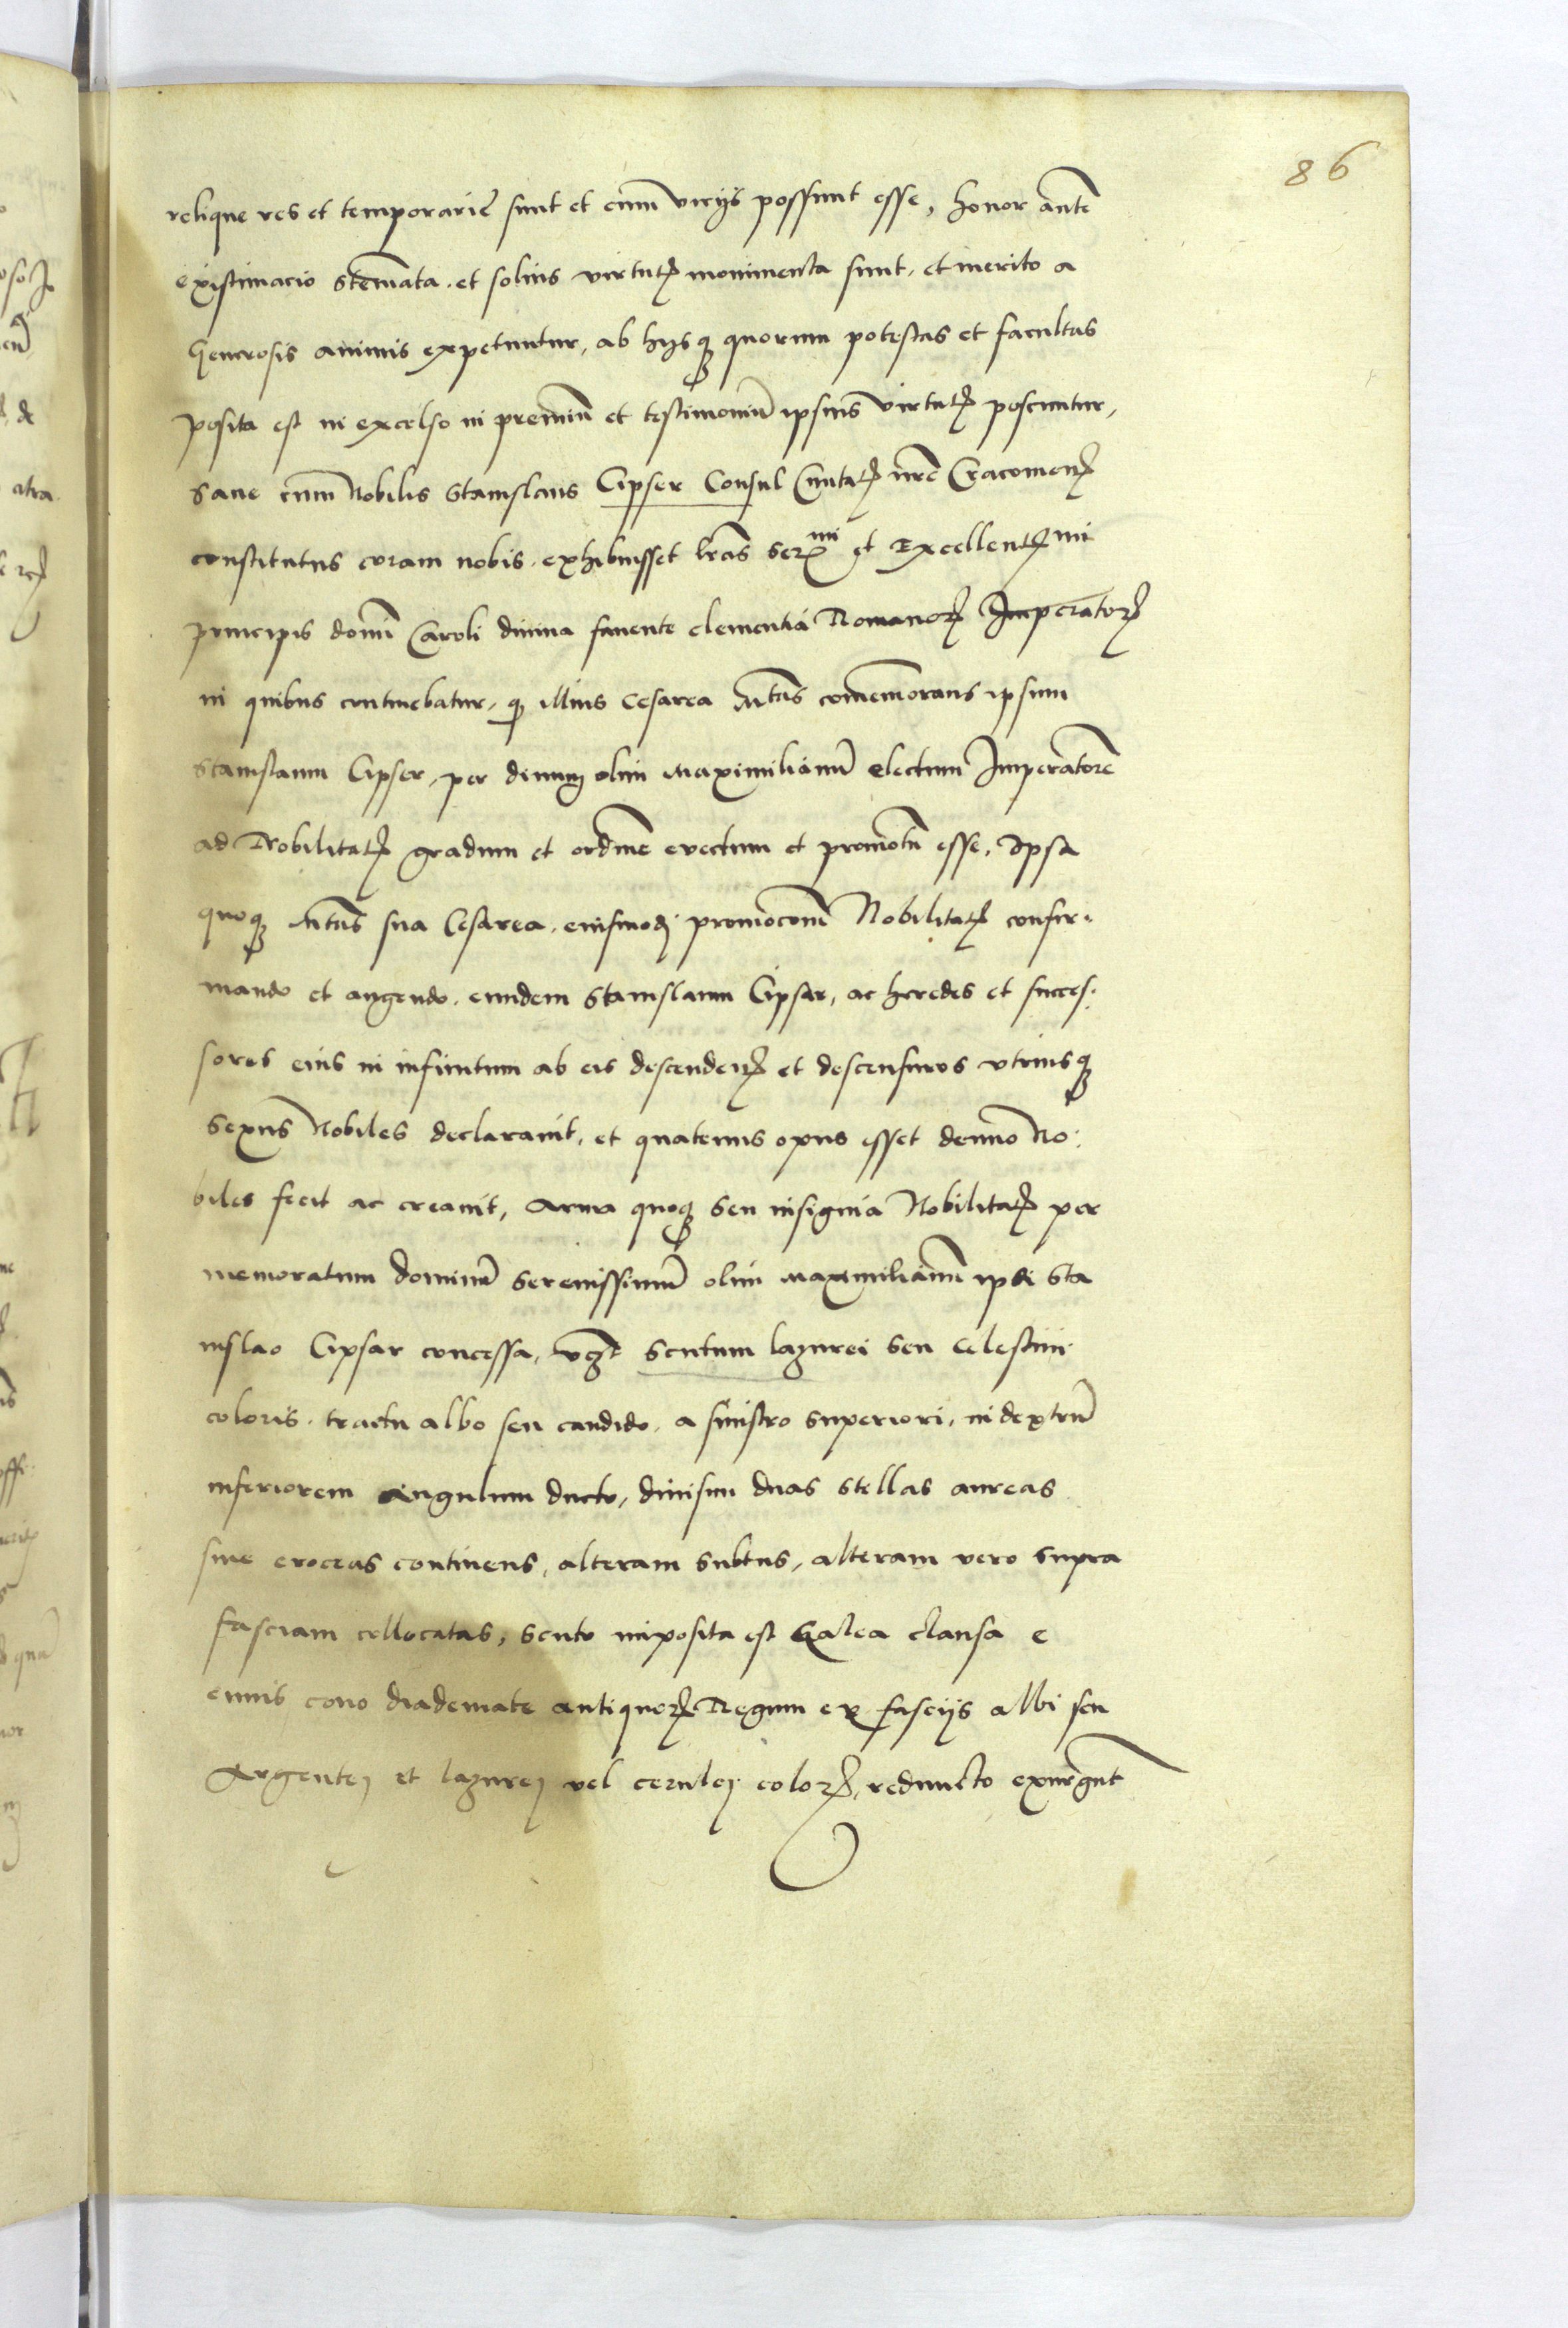 86
relique res et temporarie sunt et cum vicijs possunt esse, honor aute
existimacio stemata. et solius virtutꝭ monimenta sunt. et merito a
Generosis animis expetuntur, ab hijsqꝫ quorum potestas et facultas
posita est in excelso in premiu et testimoniu ipsius virtutꝭ poscuntur,
Sane cum Nobilis Stanislaus Cipser Consul Ciuitatꝭ nre Cracouienꝭ
constitutus coram nobis. exhibuisset lras Serᵐⁱ et Excellentꝭᵐⁱ
principis domi Caroli diuina fauente clementia Romanoꝝ Imperatorꝭ
in quibus continebatur, qꝫ illius Cesarea Mtas comemorans ipsum
Stanislaum Cipser, per diuum olim Maximilianu electum Imperatore
ad Nobilitatꝭ gradum et ordine euectum et promotu esse, Ipsa
quoqꝫ Mtas sua Cesarea. eiusmodi promocom Nobilitatꝭ confir-
mando et augendo. eundem Stanislaum Cipsar, ac heredes et succes-
sores eius in infinitum ab eis descendenꝭ et descensuros vtriusqꝫ
sexus Nobiles declarauit, et quatenus opus esset denuo No-
biles fecit ac creauit, Arma quoqꝫ seu insignia Nobilitatꝭ per
memoratum dominu Serenissimu olim Maximilianu ipsi Sta
nislao Cipsar concessa, vcꝫt Scutum lazurei seu celestini
coloris. tractu albo seu candido. a sinistro superiori, in dextru
inferiorem angulum ducto, diuisum duas stellas aureas
siue croceas continens, alteram subtus, alteram vero supra
fasciam collocatas, scuto imposita est Galea clausa e
cuius cono diademate antiquoꝝ Regum ex fascijs albi seu
Argentej et lazurej vel cerulej coloꝝ, redimicto exurgut